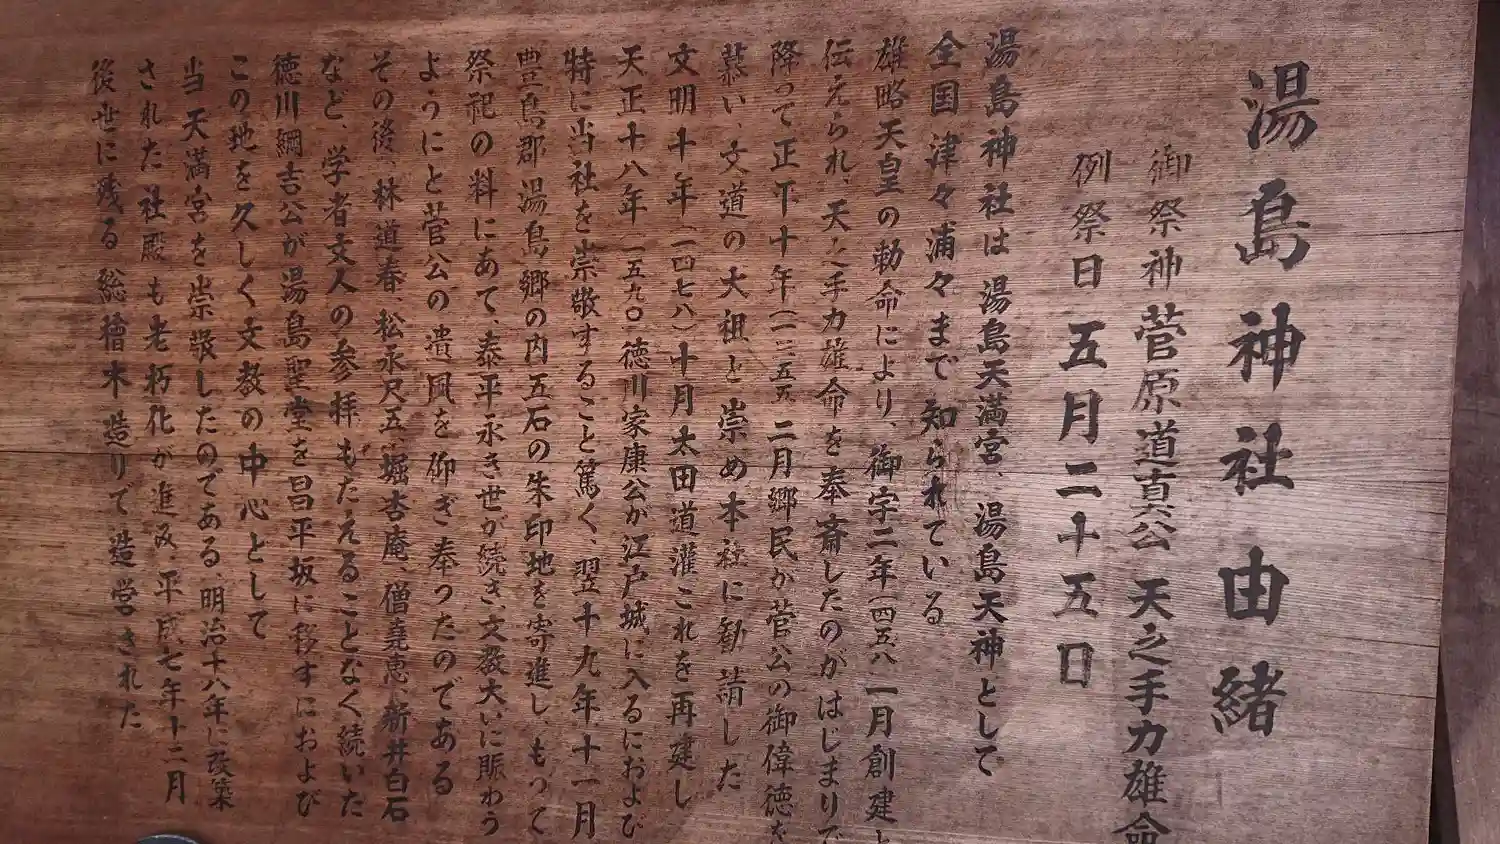 湯島神社由緒
御祭神 菅原道真公 天之手力雄命
例祭日 五月二十五日
湯島神社は 湯島天満宮、湯島天神として
全国津々浦々まで知られている
雄略天皇の勅命により、御宇二年(四五八 一月創建と
伝えられ、天之手力雄命を奉斎したのがはじまりで
降って正平十年(一三五五 二月郷民が菅公の御偉徳を
慕い 文道の大祖と崇め本社に勧請した
文明十年(一四七八)十月太田道灌これを再建し
天正十八年(一五九〇 徳川家康公が江戸城に入るにおよび
特に当社を崇敬すること篤く、翌十九年、十一月
豊島郡湯島郷の内五石の朱印地を寄進し、もって
祭祀の料にあて、泰平永き世が続き、文教大いに賑わう
ようにと菅公の遺風を仰ぎ奉ったのである
その後、林道春、松永尺五、堀杏庵、僧堯恵、新井白石
など、学者文人の参拝もたえることなく続いた
徳川綱吉公が湯島聖堂を昌平坂に移すにおよび
この地を久しく文教の中心として
当天満宮を崇敬したのである、明治十八年に改築
された社殿も老朽化が進み、平成七年十二月
後世に残る総檜木造りで造営された